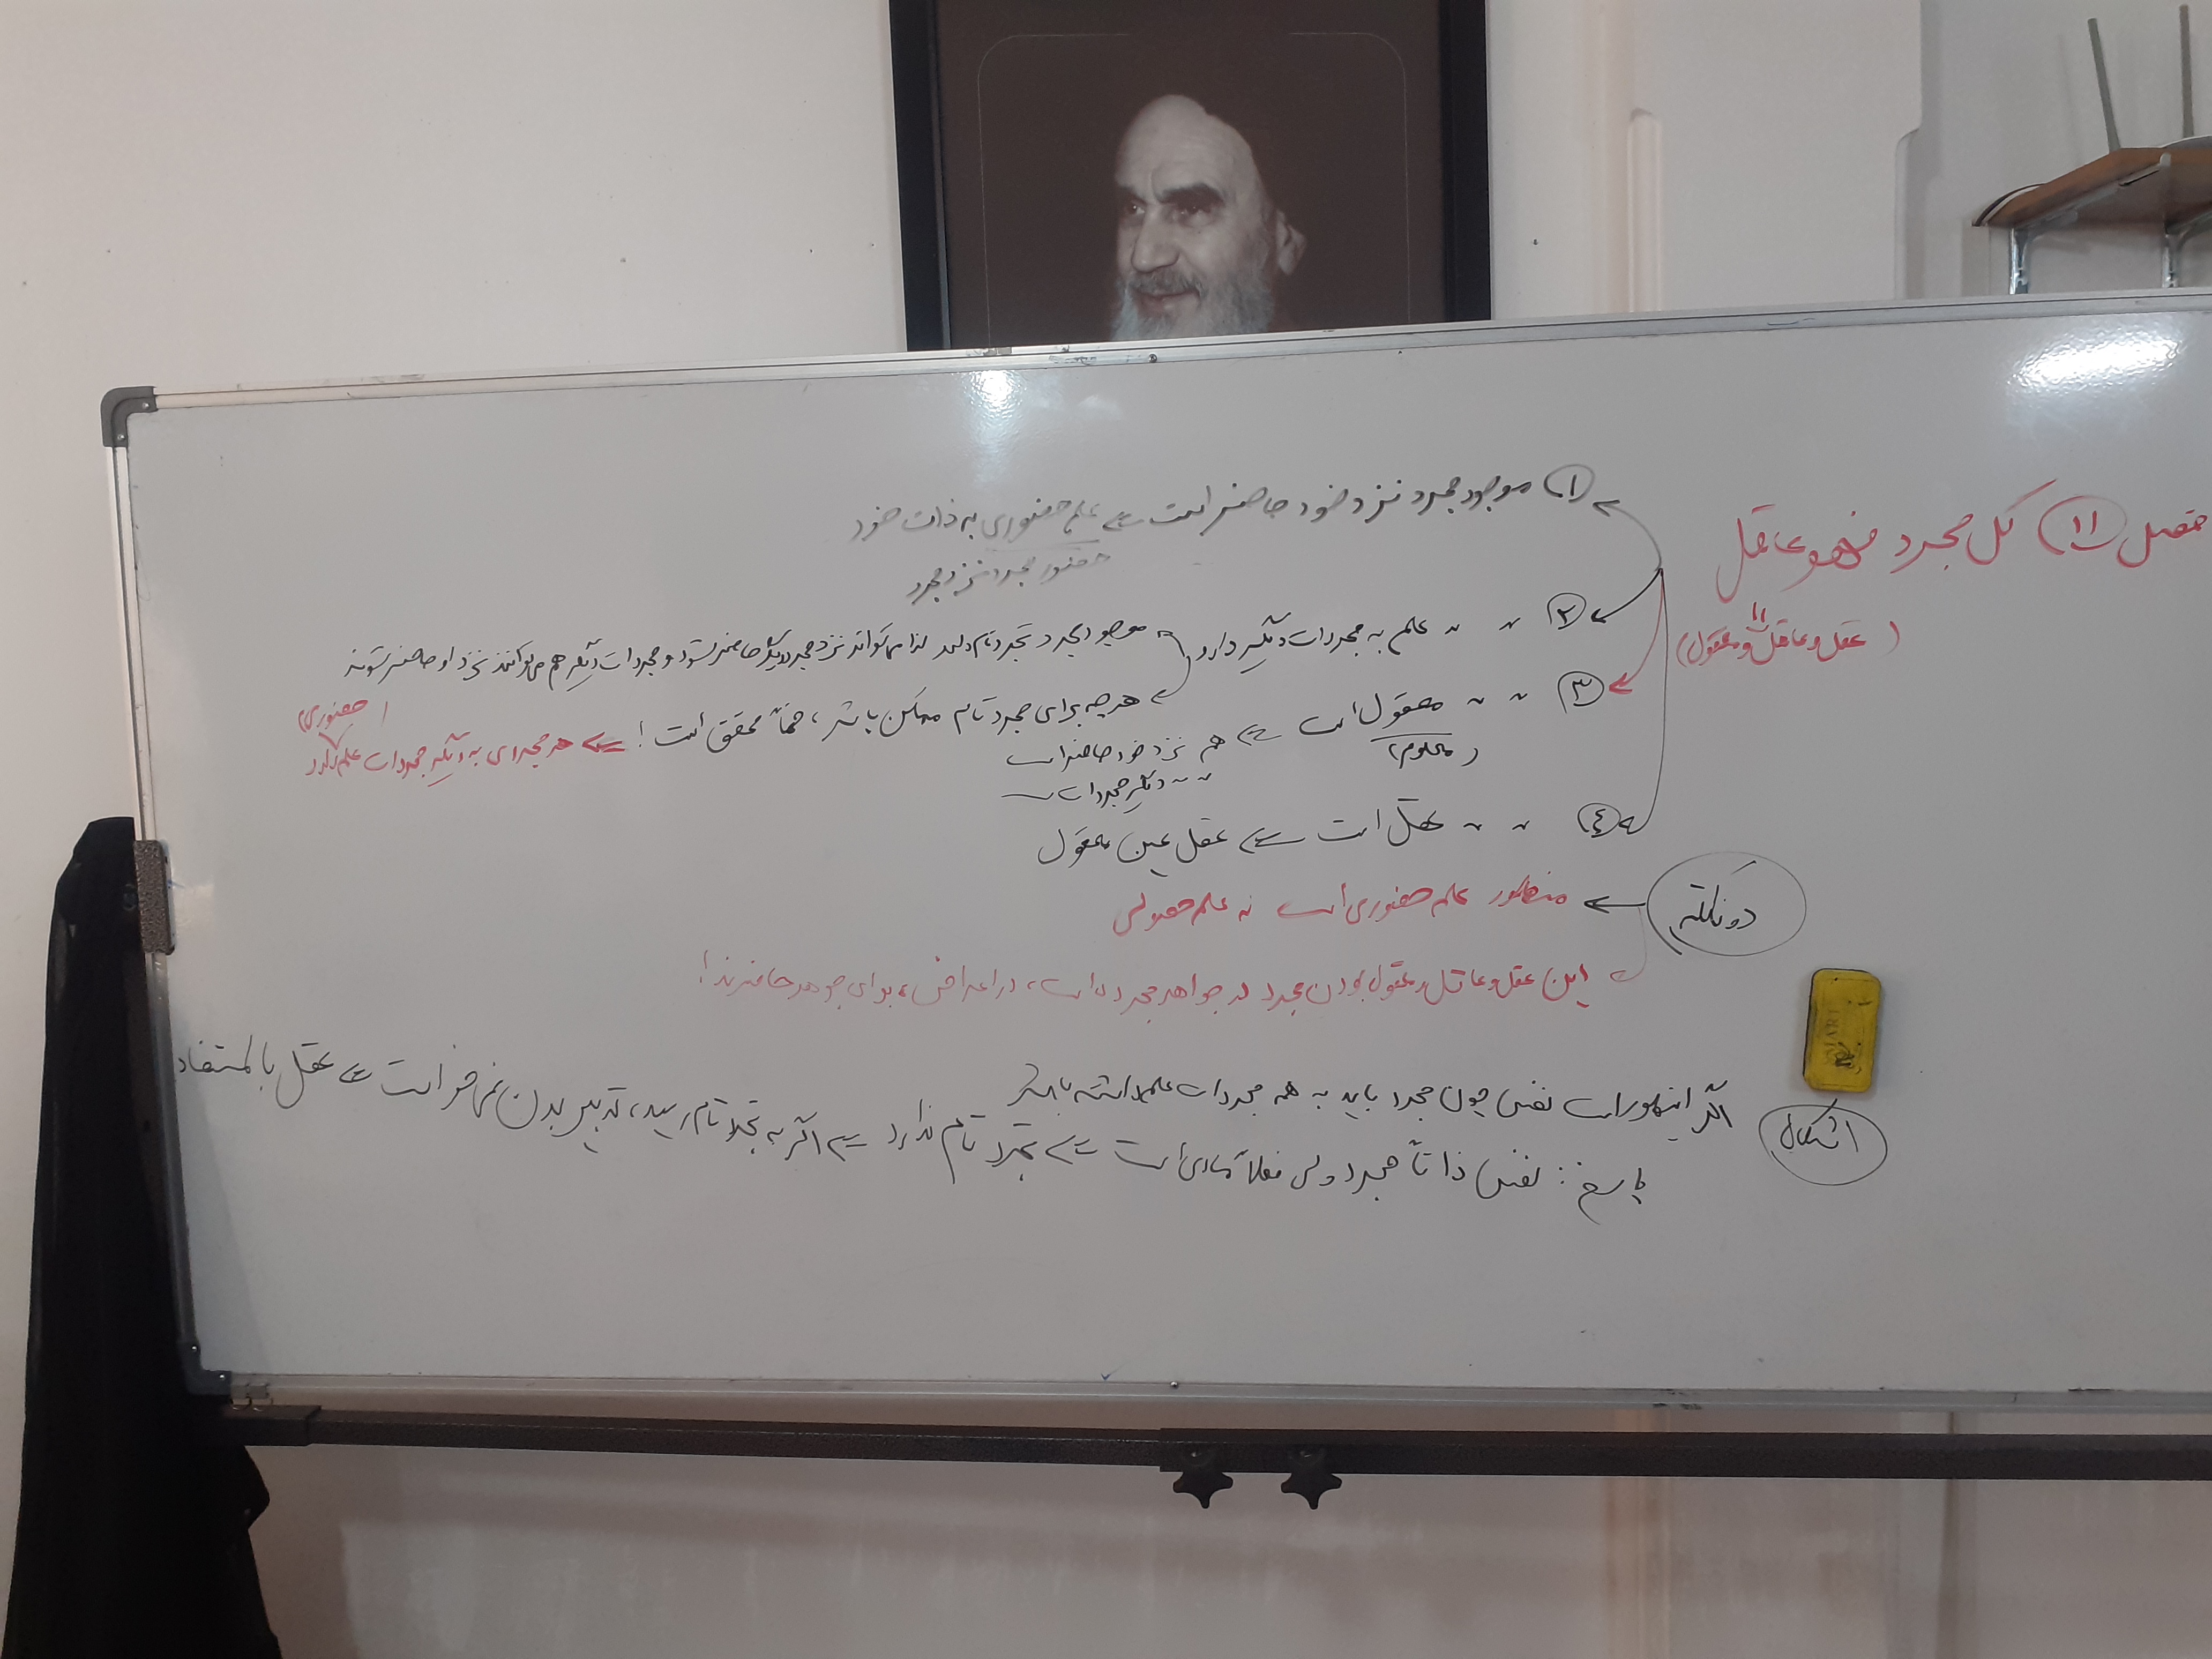 فصل ۱۱ کل مجرد فهو عاقل
(عقل و عاقل و معقول)
۱ موجود مجرد نزد خود حاضر است ⇐ علم حضوری به ذات خود
حضور مجرد نزد مجرد
۲ " " علم به مجردات دیگر دارد
موجود مجرد تجرد تام دارد لذا می‌تواند نزد مجرد دیگر حاضر شود و مجردات دیگر هم می‌توانند نزد او حاضر شوند
هر چه برای مجرد تام ممکن باشد، حتماً محقق است! ⇐ هر مجردی به دیگر مجردات علم دارد
(حضوری)
۳ " " معقول است ⇐ هم نزد خود حاضر است
(معلوم)
" " دیگر مجردات "
۴ " " عقل است ⇐ عقل عین معقول
دو نکته
منظور علم حضوری است نه علم حصولی
این عقل و عاقل و معقول بودن مجرد در جواهر مجرده است، در اعراض، برای جوهر حاضرند!
اشکال
اگر اینطور است نفس چون مجرد باید به همه مجردات علم داشته باشد
پاسخ: نفس ذاتاً مجرد ولی فعلاً مادی است ⇐ تجرد تام ندارد ⇐ اگر به تجرد تام رسید، تدبیر بدن نمی‌خواست ⇐ عقل بالمستفاد